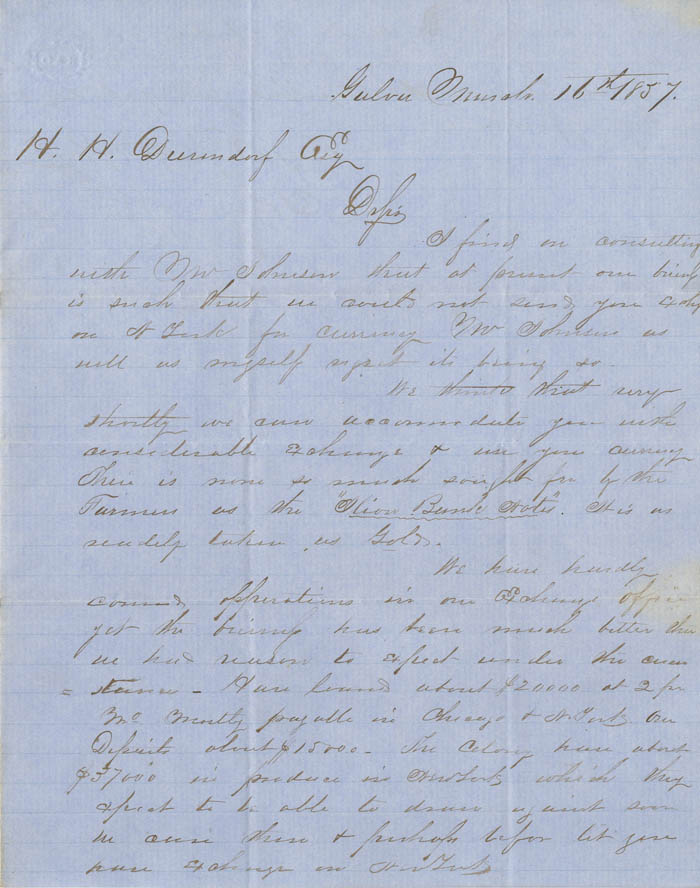 Galva March 16th 1857.
H. H. Durendorf Esq
Dr Sir
I find on consulting
with Mr Johnson that at present our busines
is such that we could not send you Exchg
on N York for currency Mr Johnson as
well as myself regret its being so.
We think that very
shortly we can accommodate you with
considerable Exchange & use your currency
There is none so much sought for by the
Farmers as the "Stiow Bank Notes". It is as
readily taken as Gold.
We have hardly
comncd opperations in our Exchange office
yet the busines has been much better than
we had reason to expect under the cicum
= stance - Have loaned about $20000 at 2 pr
Mo Mostly payable in Chicago & N. York our
Deposits about $15000 - The Colony have about
$37000 in produce in New York which they
expect to be able to draw against soon
we can then & perhaps befor let you
have Exchange on New York